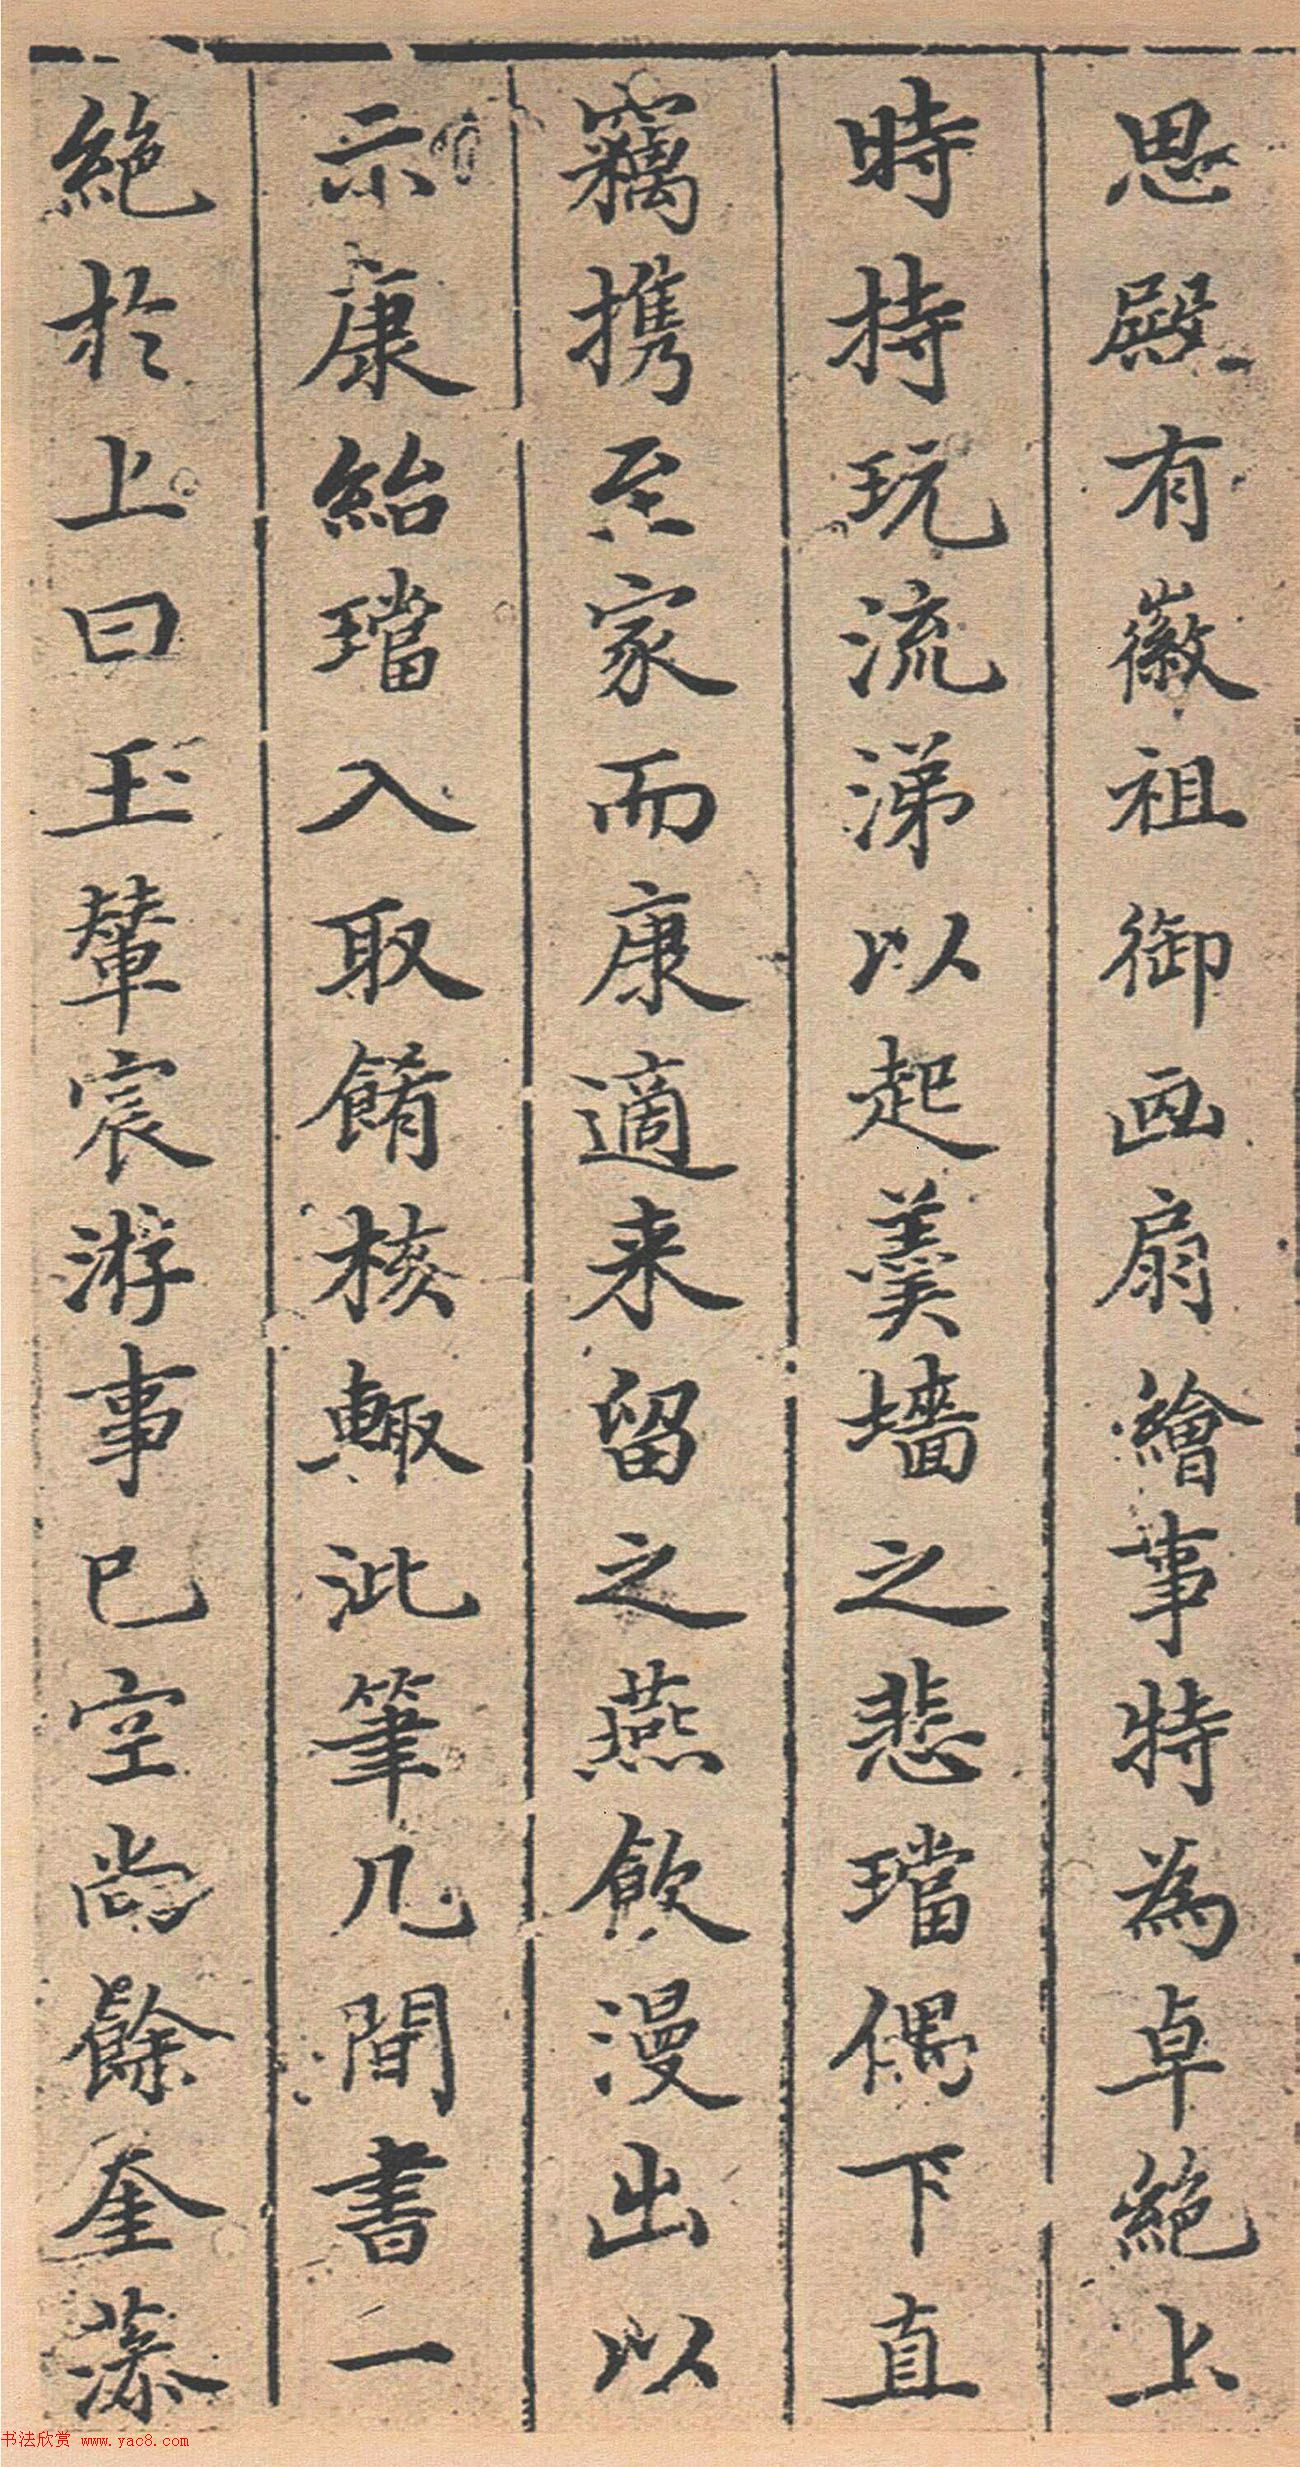 思殿有徽祖御画扇繪事特為卓絶上
時持玩流涕以起羹墻之悲璫偶下直
竊携至家而康適来留之燕飲漫出以
示康紿璫入取餚核輙泚筆几間書一
絶於上曰玉輦宸游事已空尚餘奎藻
书法欣赏 www.yac8.com